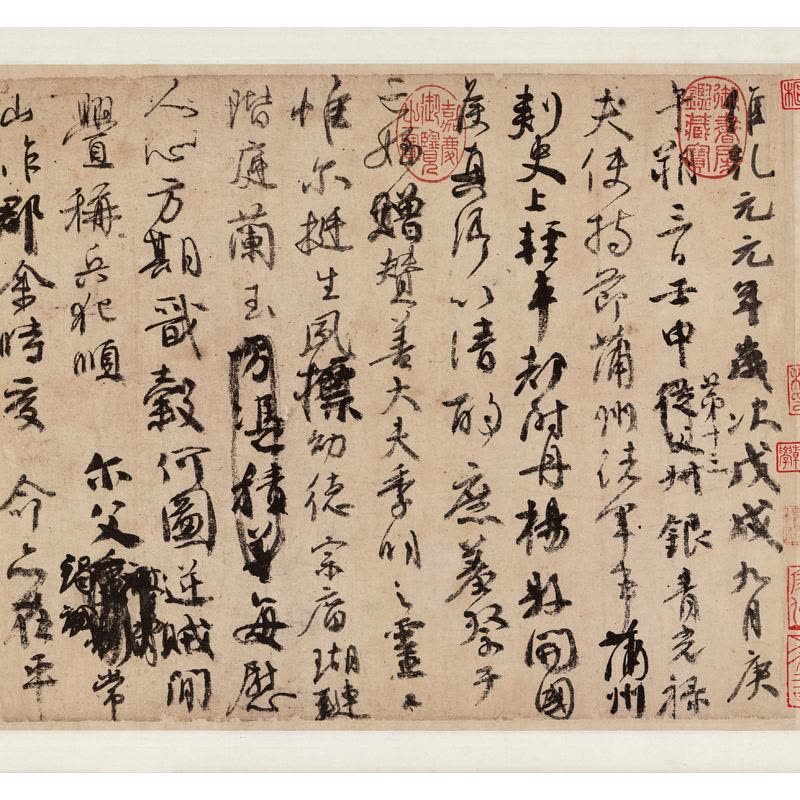 維乾元元年歲次戊戌九月庚
午朔三日壬申第十三從父叔銀青光祿
夫使持節蒲州諸軍事蒲州
刺史上輕車都尉丹楊縣開國
侯真卿以清酌庶羞祭于
亡姪贈贊善大夫季明之靈曰
惟爾挺生夙標幼德宗廟瑚璉
階庭蘭玉方憑積善每慰
人心方期戩穀何圖逆賊閒
釁稱兵犯順 爾父竭誠常
山作郡余時受命亦在平
御書房鑑藏寶
嘉慶御覽之寶